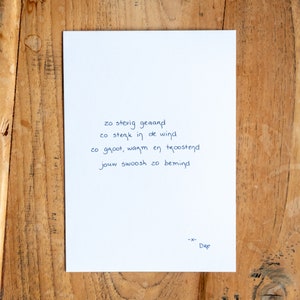 zo stevig geaard
zo sterk in de wind
zo groot, warm en troostend
jouw swoosh zo bemind
-x-